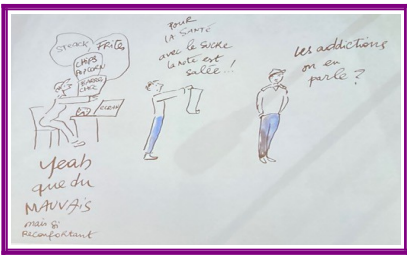 STEACK
FRITES
CHIPS
POPCORN
BARRES
CHOC
Yeah
que du
MAUVAIS
mais si
Reconfortant
POUR
LA SANTÉ
avec le SUCRE
la note est
salée...!
Les addictions
on en
parle ?